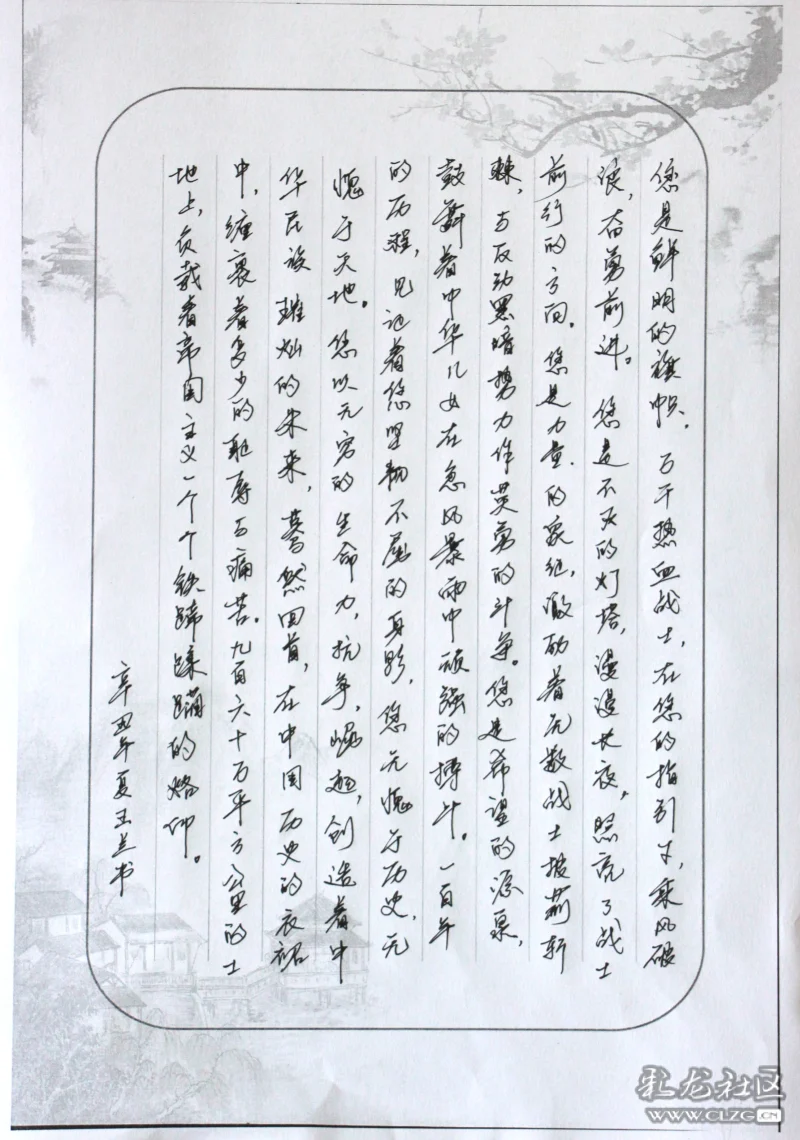 您是鲜明的旗帜。万千热血战士,在您的指引下,乘风破
浪,奋勇前进。您是不灭的灯塔,漫漫长夜,照亮了战士
前行的方向。您是力量的象征,激励着无数战士披荆斩
棘,与反动黑暗势力作英勇的斗争。您是希望的源泉,
鼓舞着中华儿女在急风暴雨中顽强的搏斗。一百年
的历程,见证着您坚韧不屈的身影,您无愧于历史,无
愧于天地。您以无穷的生命力,抗争,崛起,创造着中
华民族璀灿的未来,蓦然回首,在中国历史的衣裙
中,缠裹着多少的耻辱与痛苦。九百六十万平方公里的土
地上,负载着帝国主义一个个铁蹄蹂躏的烙印。
辛丑年夏玉兰书
彩龙社区
WWW.CLZG.CN